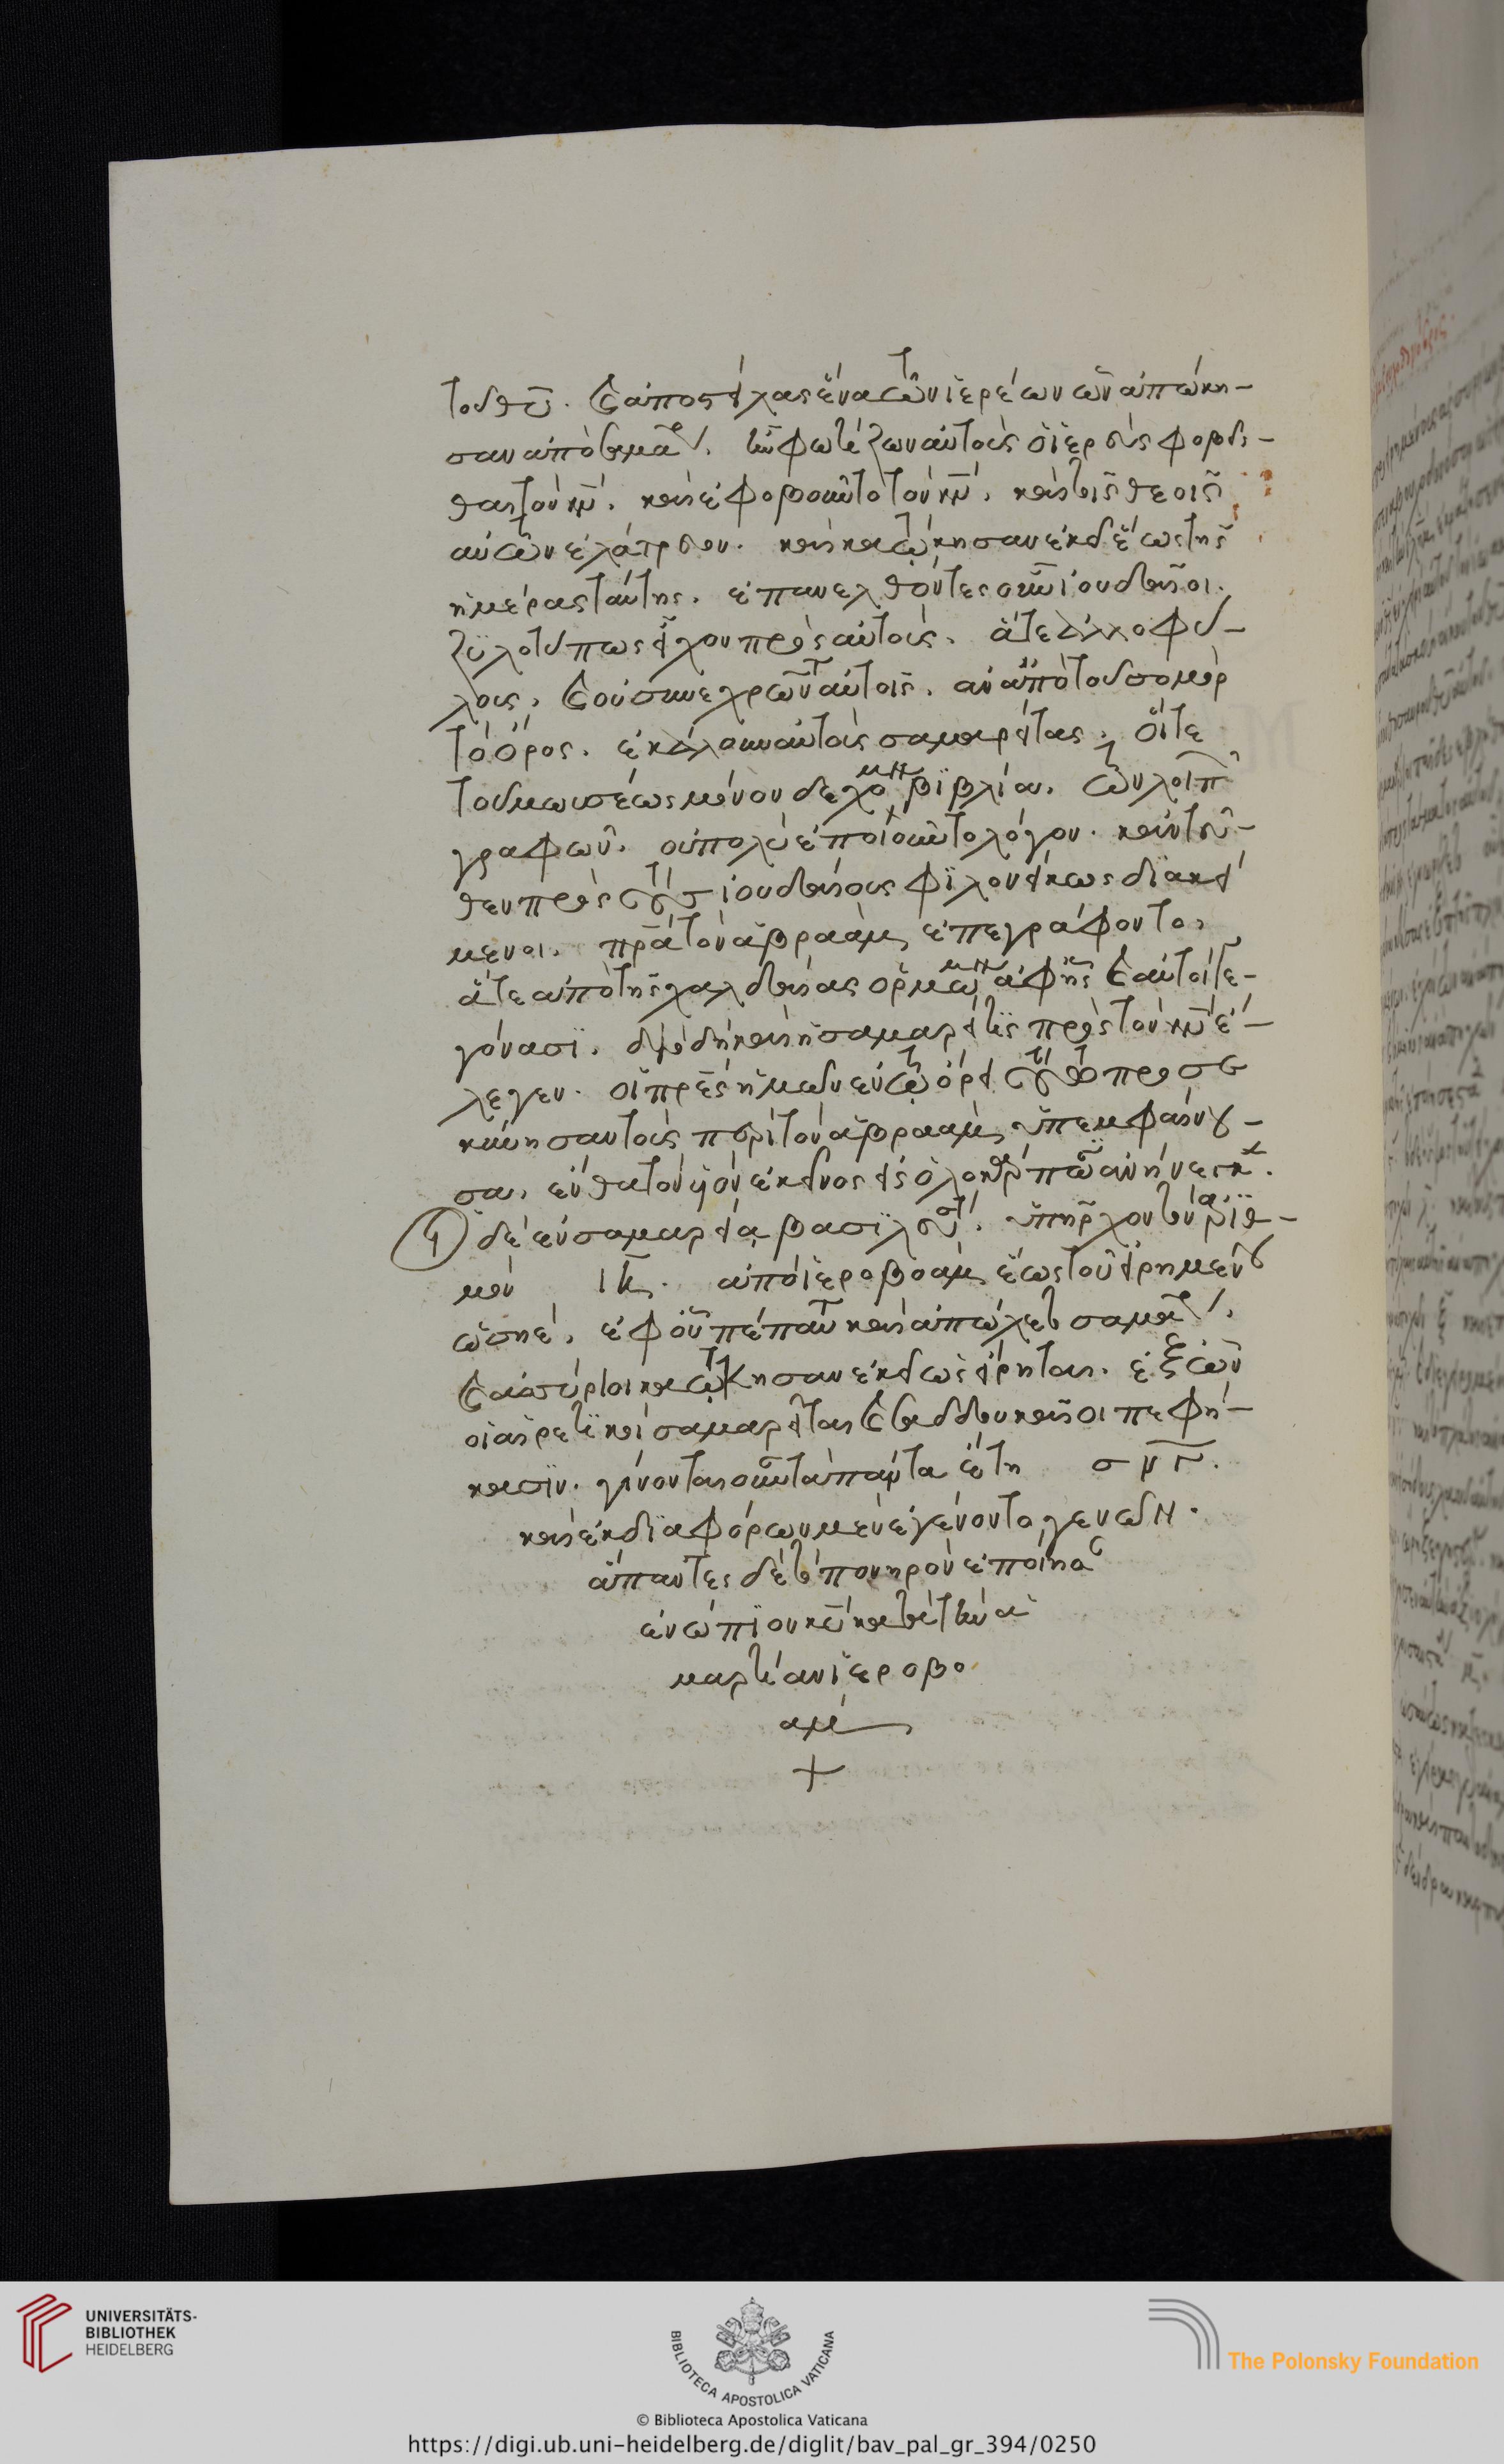 τοῦ θυ̅. καὶ ἀποστείλας ἕνα τῶν ἱερέων ὧν ἀπώκη-
σαν ἀπὸ σαμαρ. ἐφώτιζεν αὐτοὺς ὁ ἱερεὺς φοβεῖ-
σθαι τὸν κν̅. καὶ ἐφοβοῦντο τὸν κν̅. καὶ τοῖς θεοῖς
αὐτῶν ἐλάτρευον. καὶ κατῴκησαν ἐκεῖ ἕως τῆς
ἡμέρας ταύτης. ἐπανελθόντες οὖν ἰουδαῖοι.
ζηλοτύπως εἶχον πρὸς αὐτούς. ἅτε ἀλλοφύ-
λους, καὶ οὐ συνεχρῶντ αὐτοῖς. ἀλλ ἀπὸ τοῦ σομὸρ
τὸ ὄρος. ἐκάλουν αὐτοὺς σαμαρείτας. οἵτε
τοῦ μωυσέως μόνον δεχόμενοι βιβλία. τῶν λοιπῶν
γραφῶν. οὐ πολὺν ἐποιοῦντο λόγον. καὶ ἐντεῦ-
θεν πρὸς τοὺς ἰουδαίους φιλονείκως διακεί
μενοι. πρα̅ τὸν ἀβραὰμ ἐπεγράφοντο,
ἅτε ἀπὸ τῆς χαλδαίας ὁρμώμενον ἀφ ἧς καὶ αὐτοὶ γε-
γόνασι. διὸ δὴ καὶ ἡ σαμαρεῖτις πρὸς τὸν κν̅ ἔ-
λεγεν. οἱ πρε̅ς ἡμῶν ἐν τῷ ὄρει τούτῳ προσε
κύνησαν τοὺς περὶ τὸν ἀβραὰμ ὑπεμφαίνου-
σα, ἔνθα τὸν υἱὸν ἐκεῖνος εἰς ὁλοκάρπωσιν ἀνήνεγκ.
οἱ δὲ ἐν σαμαρείᾳ βασιλεῖς. ὑπῆρχον τὸν ἀριθ-
μὸν ιη̅. ἀπὸ ἱεροβοὰμ ἕως τοῦ εἰρημένου
ὡσηέ, ἐφ οὗ πέπαυται καὶ ἀπώλετο σαμαρ.
καὶ ἀσσύριοι κατῴκησαν ἐκεῖ ὡς εἴρηται. ἐξ ὧν
οἱ αἱρετικοὶ σαμαρεῖται καὶ σαδδουκαῖοι πεφή-
κασιν. γίνονται οὖν τὰ πάντα ἔτη σμ̅γ̅.
καὶ ἐκ διαφόρων μὲν ἐγένοντο γενεῶν.
ἅπαντες δὲ τὸ πονηρὸν ἐποίησαν
ἐνώπιον κυ̅ κατὰ τὴν ἁ
μαρτίαν ἱεροβο
άμ
+
UNIVERSITÄTS-
BIBLIOTHEK
HEIDELBERG
BIBLIOTECA APOSTOLICA VATICANA
The Polonsky Foundation
© Biblioteca Apostolica Vaticana
https://digi.ub.uni-heidelberg.de/diglit/bav_pal_gr_394/0250